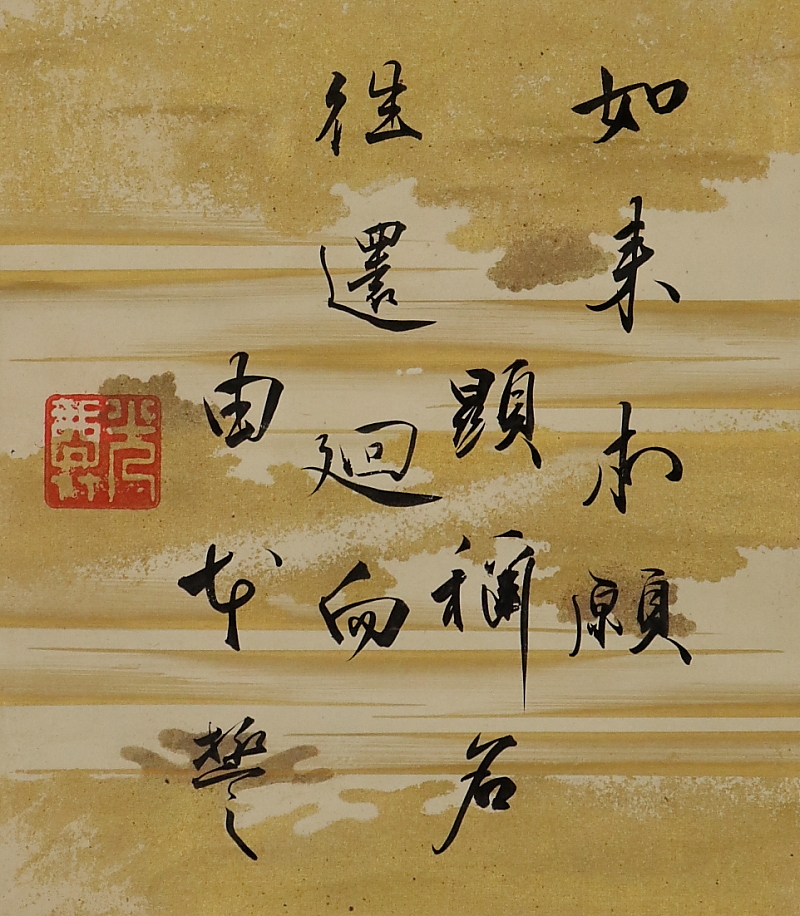 如来本願
顕称名
往還廻向
由本誓